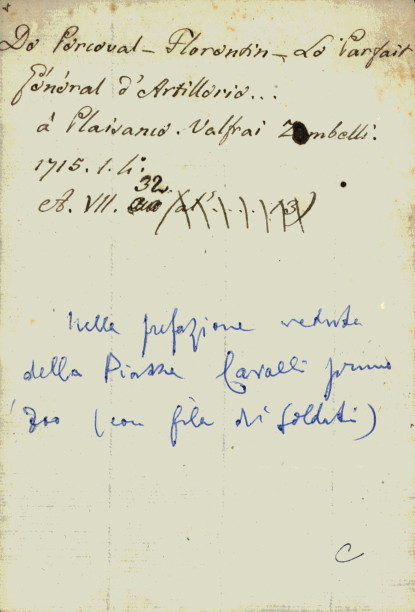 De Percoval - Florentin - Le Parfait
Général d'Artillerie...
á Plaisance. Valfrai Zambelli.
1715. 1. li.
32
A. VII.
Nella prefazione veduta
della Piazza Cavalli primo
'700 (con fila di soldati)
C